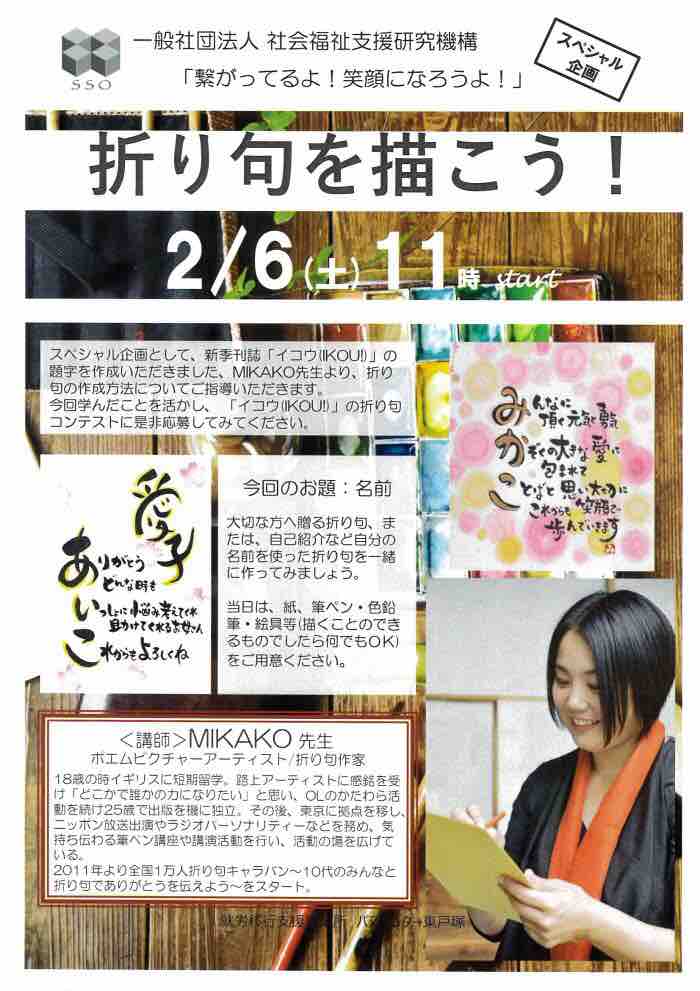 SSO
一般社団法人 社会福祉支援研究機構
「繋がってるよ！笑顔になろうよ！」
スペシャル
企画
折り句を描こう！
2/6(土)11時 start
スペシャル企画として、新季刊誌「イコウ(IKOU!)」の
題字を作成いただきました、MIKAKO先生より、折り
句の作成方法についてご指導いただきます。
今回学んだことを活かし、「イコウ(IKOU!)」の折り句
コンテストに是非応募してみてください。
みんなに
頂く元気と勇気
かぞくの大きな愛に
包まれて
ことばと思い大切に
これからも笑顔で
歩んでいきます
愛子
ありがとう
どんな時も
いっしょに悩み考えてくれ
助けてくれるお母さん
これからもよろしくね
今回のお題：名前
大切な方へ贈る折り句、ま
たは、自己紹介など自分の
名前を使った折り句を一緒
に作ってみましょう。
当日は、紙、筆ペン・色鉛
筆・絵具等(描くことのでき
るものでしたら何でもOK)
をご用意ください。
＜講師＞MIKAKO 先生
ポエムピクチャーアーティスト/折り句作家
18歳の時イギリスに短期留学。路上アーティストに感銘を受
け「どこかで誰かの力になりたい」と思い、OLのかたわら活
動を続け25歳で出版を機に独立。その後、東京に拠点を移し、
ニッポン放送出演やラジオパーソナリティーなどを務め、気
持ち伝わる筆ペン講座や講演活動を行い、活動の場を広げて
いる。
2011年より全国1万人折り句キャラバン～10代のみんなと
折り句でありがとうを伝えよう～をスタート。
就労移行支援 東戸塚